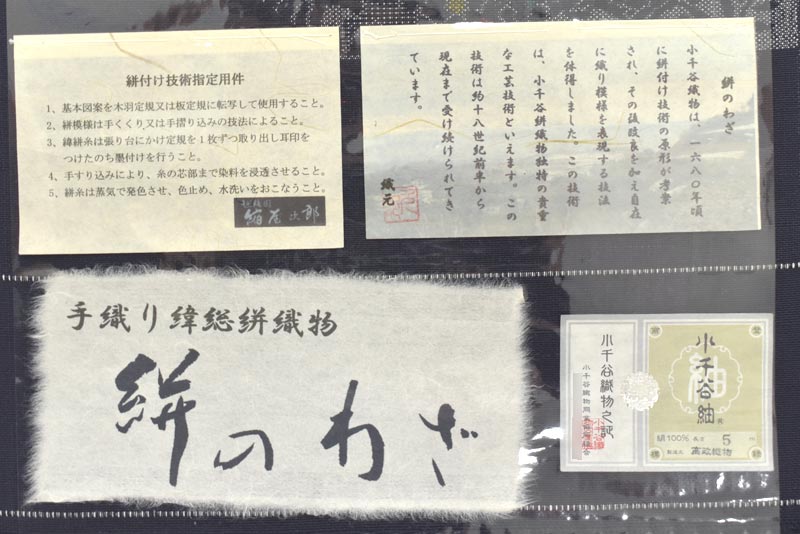 絣付け技術指定用件
1、基本図案を木羽定規又は板定規に転写して使用すること。
2、絣模様は手くくり又は手摺り込みの技法によること。
3、緯絣糸は張り台にかけ定規を1枚ずつ取り出し耳印を
つけたのち墨付けを行うこと。
4、手すり込みにより、糸の芯部まで染料を浸透させること。
5、絣糸は蒸気で発色させ、色止め、水洗いをおこなうこと。
越後国
縮屋次郎
絣のわざ
小千谷織物は、一六八〇年頃
に絣付け技術の原形が考案
され、その後改良を加え自在
に織り模様を表現する技法
を体得しました。この技術
は、小千谷絣織物独特の貴重
な工芸技術といえます。この
技術は約十八世紀前半から
現在まで受け続けられてき
ています。
織元
手織り緯総絣織物
絣のわざ
小千谷織物之証
小千谷織物同業協同組合
紬
小千谷紬
絹100% 長さ 5 m
製造元 高政織物